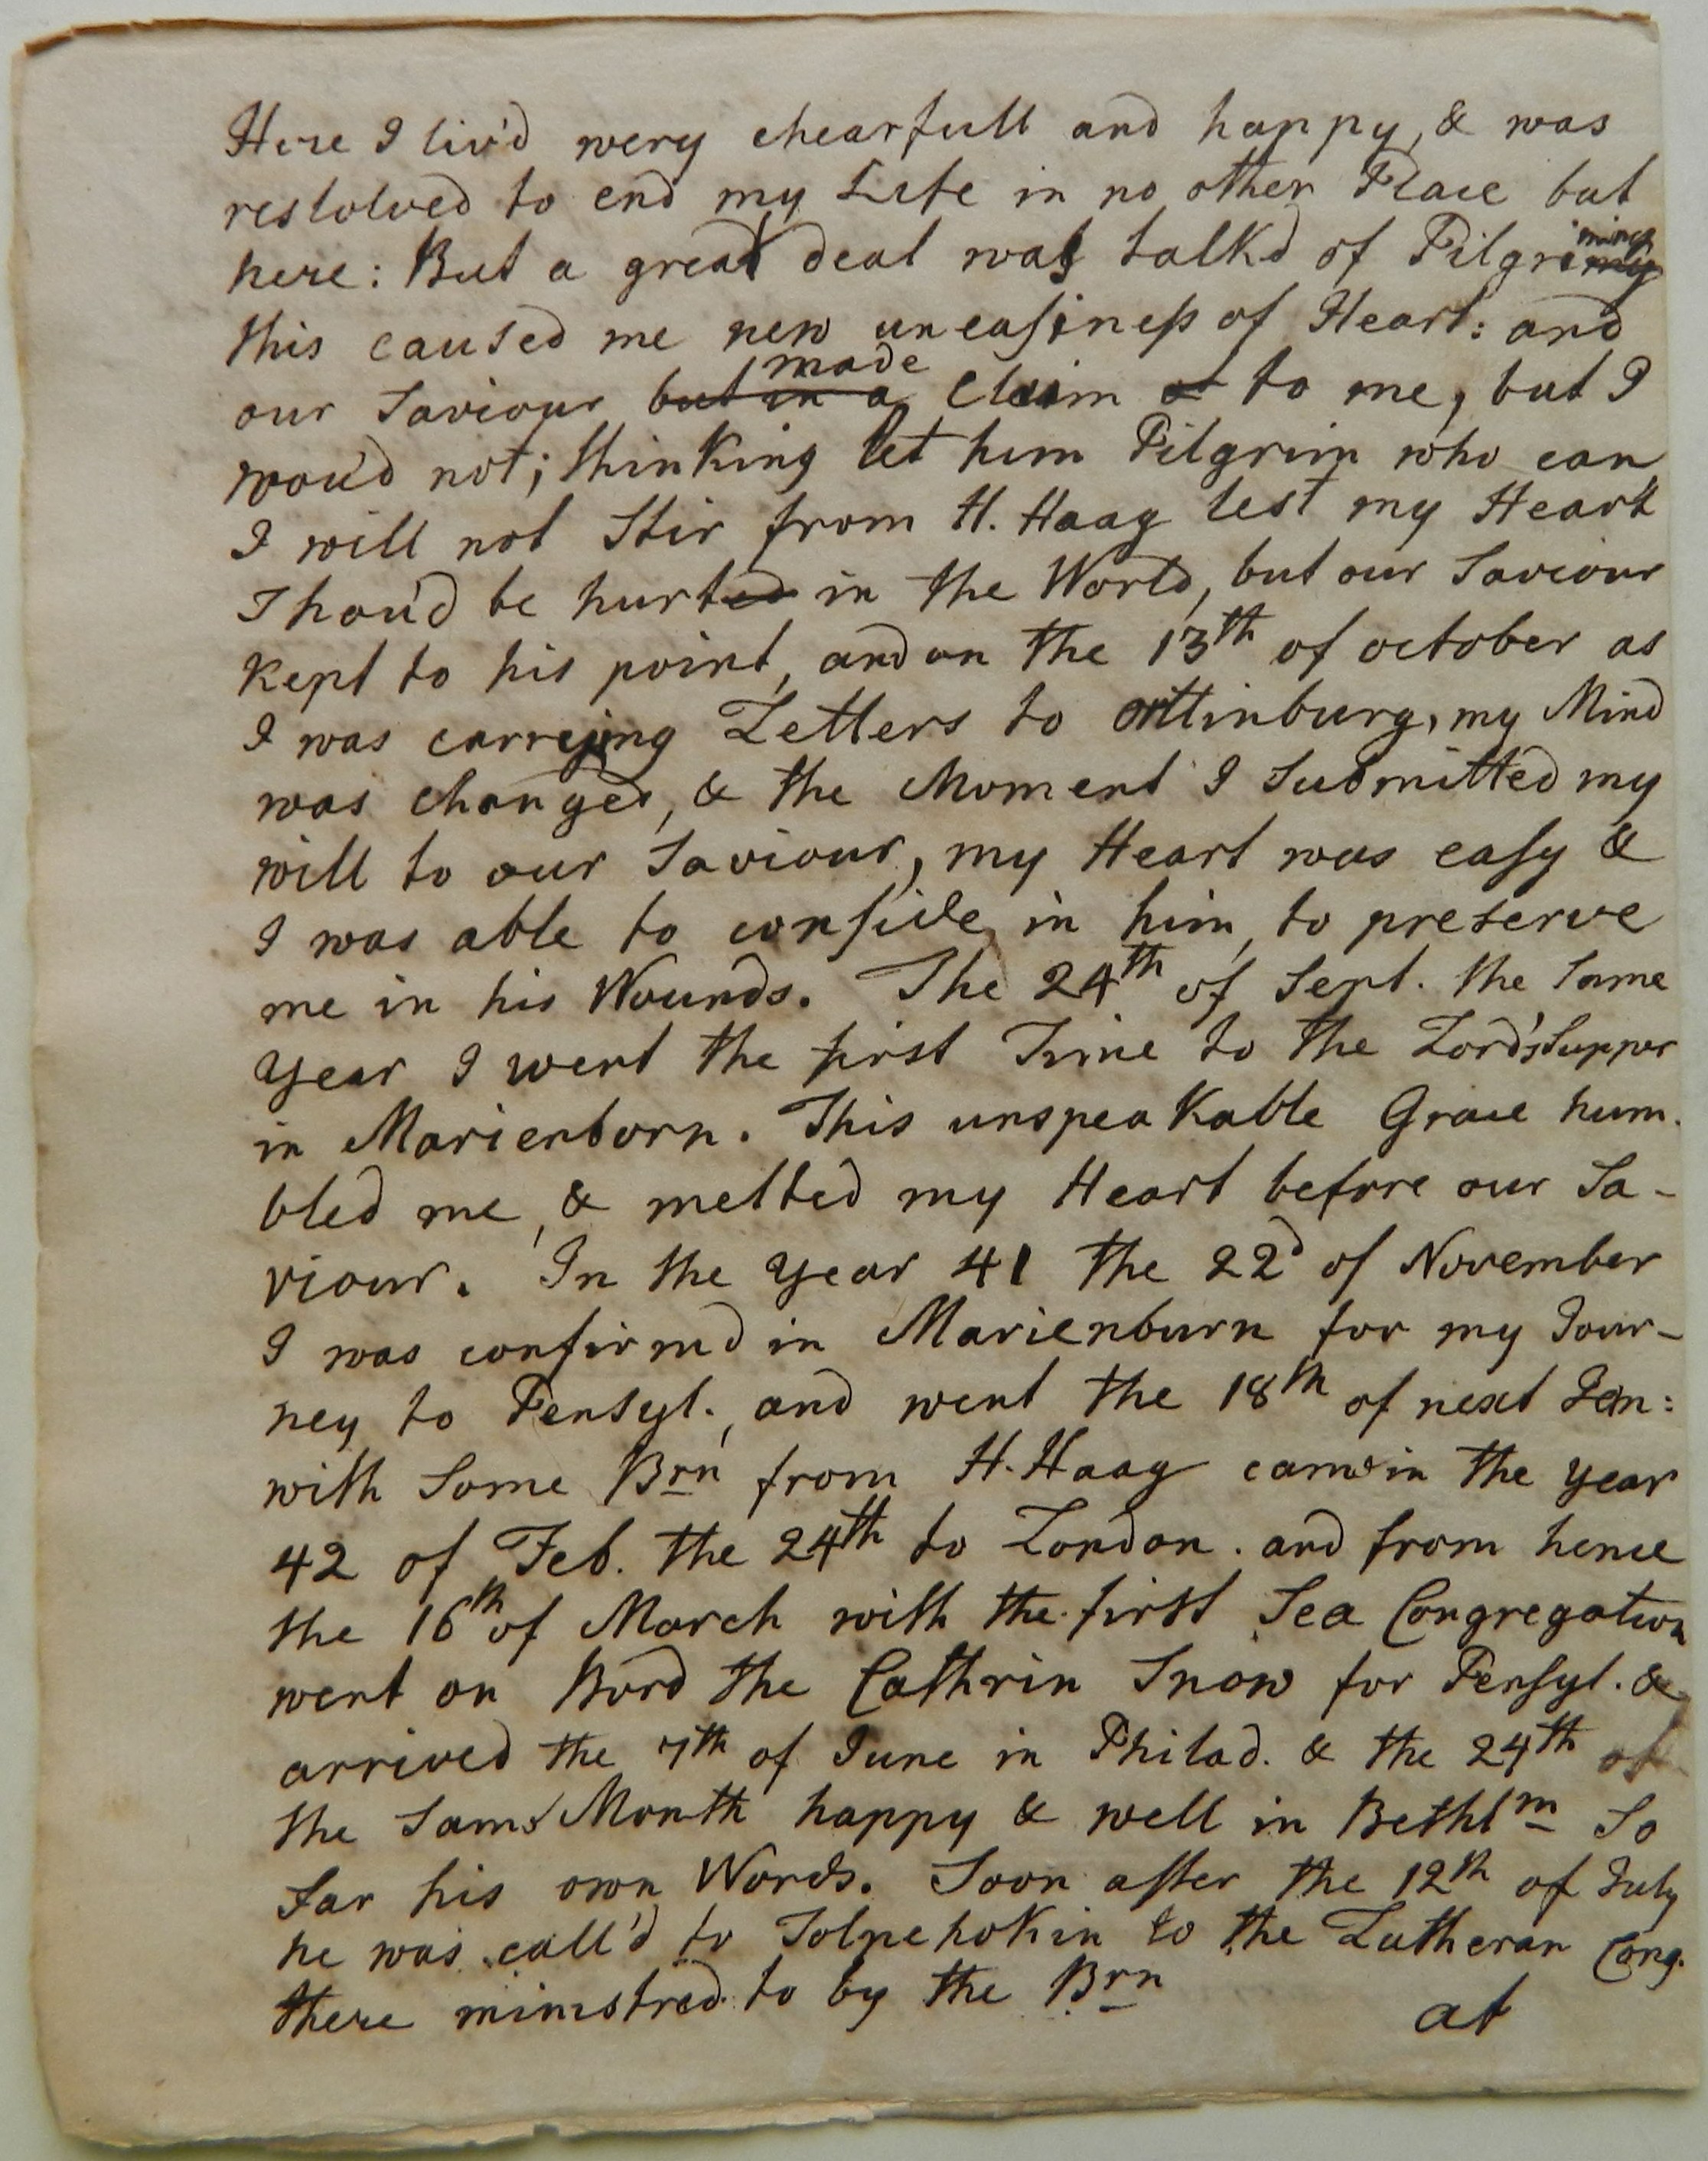 Here I liv'd wery chearfull and happy, & was
resolved to end my Life in no other Place but
here: But a great deal was talk'd of Pilgriming
this caused me new uneasiness of Heart: and
our Saviour but in a made Claim to me, but I
wou'd not; thinking let him Pilgrim who can
I will not Stir from H. Haag lest my Heart
Shou'd be hurted in the World, but our Saviour
kept to his point, and on the 13th of october as
I was carrying Letters to my Mind
was changed, & the Moment I Submitted my
will to our Saviour, my Heart was easy &
I was able to confide in him, to preserve
me in his Wounds. The 24th of Sept. the Same
Year I went the first Time to the Lord's Supper
in Marienborn. This unspeakable Grace hum-
bled me, & melted my Heart before our Sa-
viour. In the Year 41 the 22d of November
I was confirmd in Marienburn for my Jour-
ney to Pensyl., and went the 18th of next Jan:
with Some Brn from H. Haag came in the Year
42 of Feb. the 24th to London. and from hence
the 16th of March with the first Sea Congregation
went on Bord the Cathrin Snow for Pensyl. &
arrived the 7th of June in Philad. & the 24th of
the Same Month happy & well in Bethlm So
far his own Words. Soon after the 12th of July
he was call'd to Tolpehokin to the Lutheran Cong.
there ministred to by the Brn
at